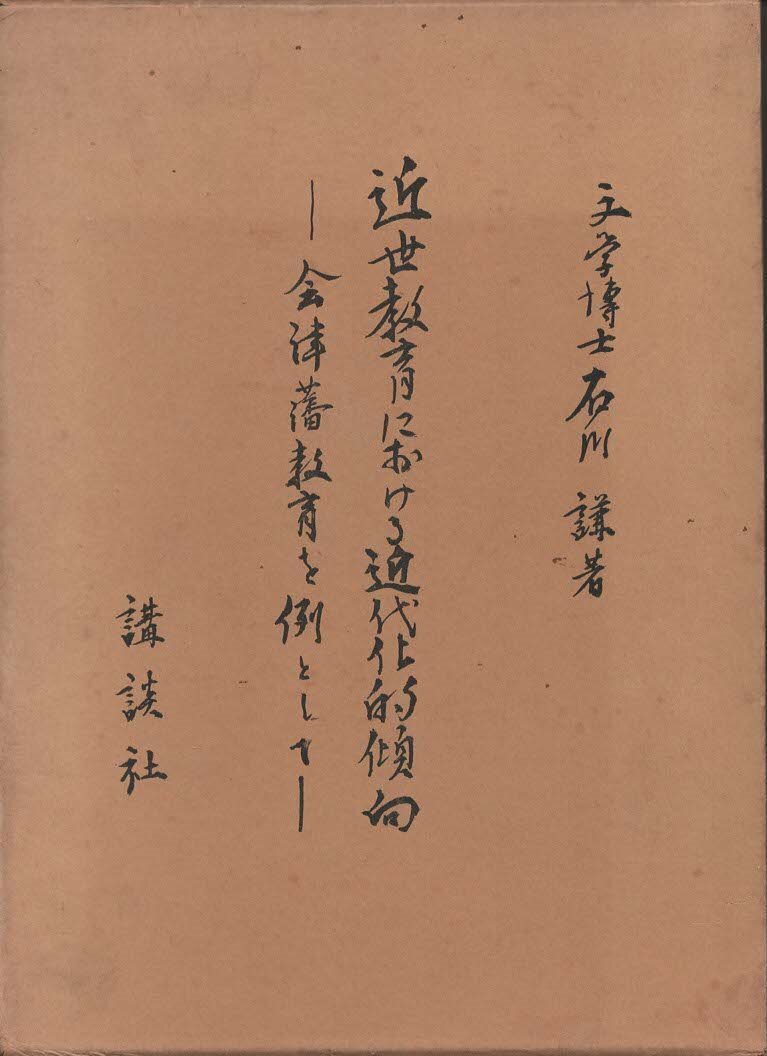 文学博士 石川 謙著
近世教育における近代化的傾向
―会津藩教育を例として―
講談社